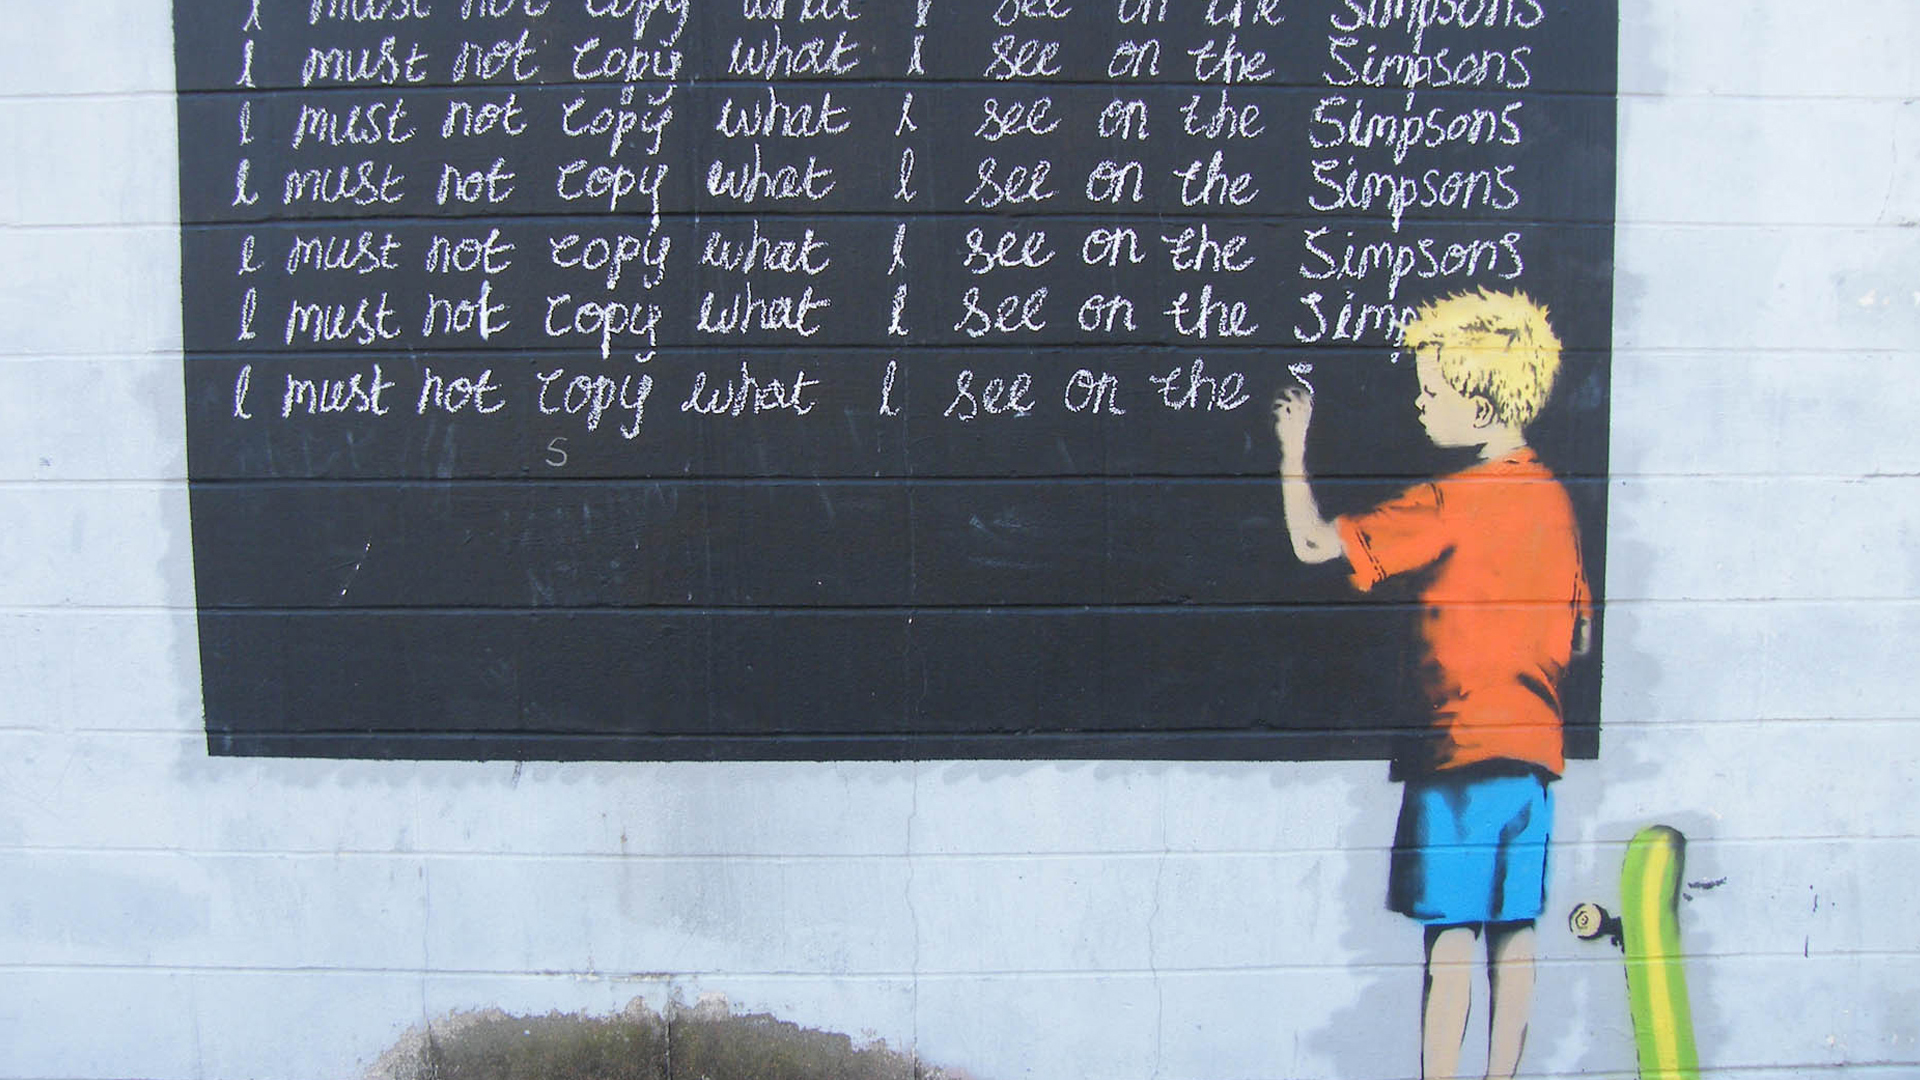 I must not copy what I see on the Simpsons
I must not copy what I see on the Simpsons
I must not copy what I see on the Simpsons
I must not copy what I see on the Simpsons
I must not copy what I see on the Simpsons
I must not copy what I see on the Simp
I must not copy what I see on the S
S